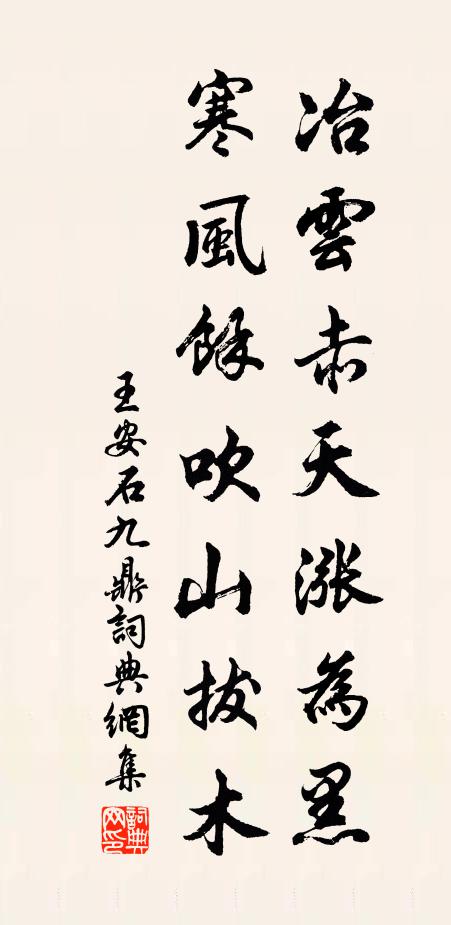 冶雲赤天漲為黑
寒風餘吹山拔木
王安石九鼎詞典網集
詞典網印